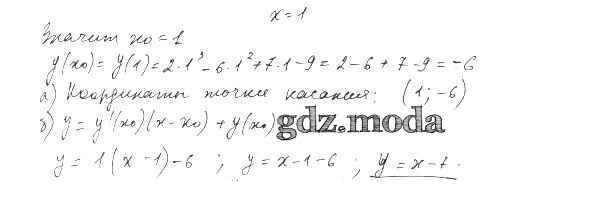 x=1
Значит x₀=1
y(x₀)= y(1)=2·1³-6·1²+7·1-9=2-6+7-9=-6
а) Координаты точки касания: (1;-6)
б) y=y'(x₀)(x-x₀)+y(x₀) gdz.moda
y=1(x-1)-6 ; y=x-1-6 ; y=x-7.